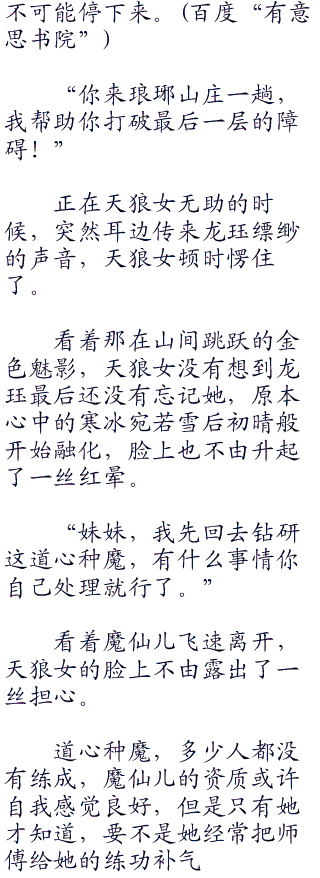 不可能停下来。(百度“有意
思书院”)
“你来琅琊山庄一趟，
我帮助你打破最后一层的障
碍！”
正在天狼女无助的时
候，突然耳边传来龙珏缥缈
的声音，天狼女顿时愣住
了。
看着那在山间跳跃的金
色魅影，天狼女没有想到龙
珏最后还没有忘记她，原本
心中的寒冰宛若雪后初晴般
开始融化，脸上也不由升起
了一丝红晕。
“妹妹，我先回去钻研
这道心种魔，有什么事情你
自己处理就行了。”
看着魔仙儿飞速离开，
天狼女的脸上不由露出了一
丝担心。
道心种魔，多少人都没
有练成，魔仙儿的资质或许
自我感觉良好，但是只有她
才知道，要不是她经常把师
傅给她的练功补气